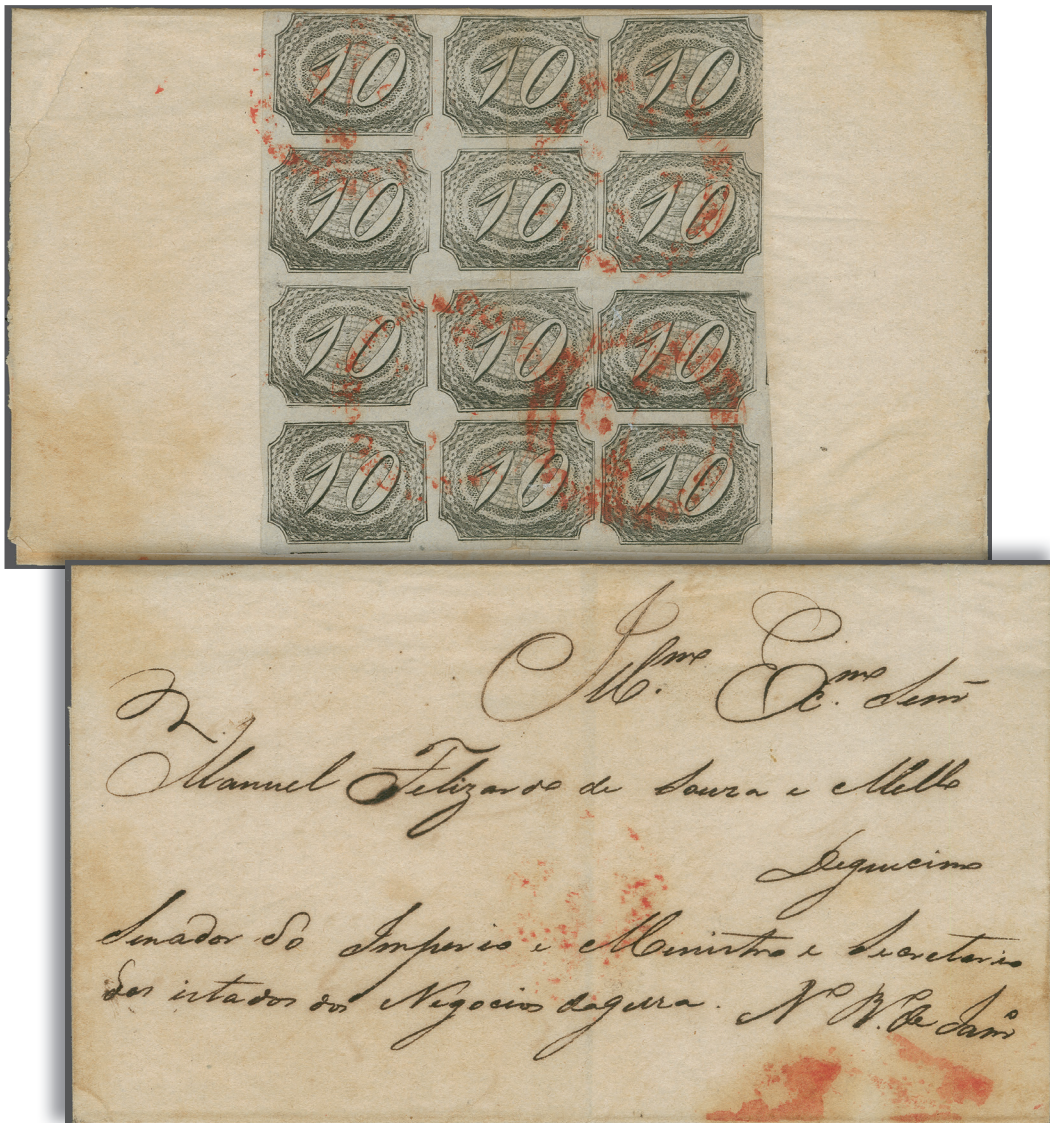 10 10 10
10 10 10
10 10 10
10 10 10
Illmo. Excmo. Senr
Manuel Felizardo de Souza e Mello
Deguicimo
Senador do Imperio e Menistro e Secreterio
dos istados dos Negocios dagerra. No R. de Janro